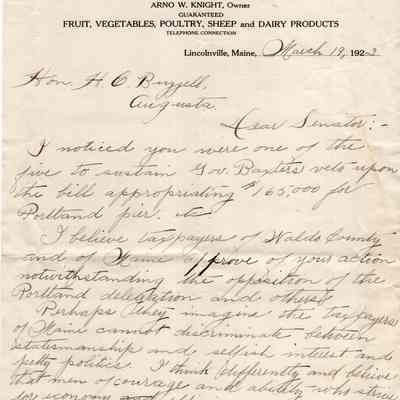 ARNO W. KNIGHT, Owner
GUARANTEED
FRUIT, VEGETABLES, POULTRY, SHEEP and DAIRY PRODUCTS
TELEPHONE CONNECTION
Lincolnville, Maine, March 19, 1923
Hon. H. C. Buzzell,
Augusta.
Dear Senator:-
I noticed you were one of the
five to sustain Gov. Baxters veto upon
the bill appropriating $165,000 for
Portland pier. etc
I believe taxpayers of Waldo County
and of Maine approve of your action
notwithstanding the opposition of the
Portland deligation and others.
Perhaps they imagine the taxpayers
of Maine cannot discriminate between
statesmanship and selfish interest and
petty politics. I think differently and believe
that men of courage and ability who strive
for economy and